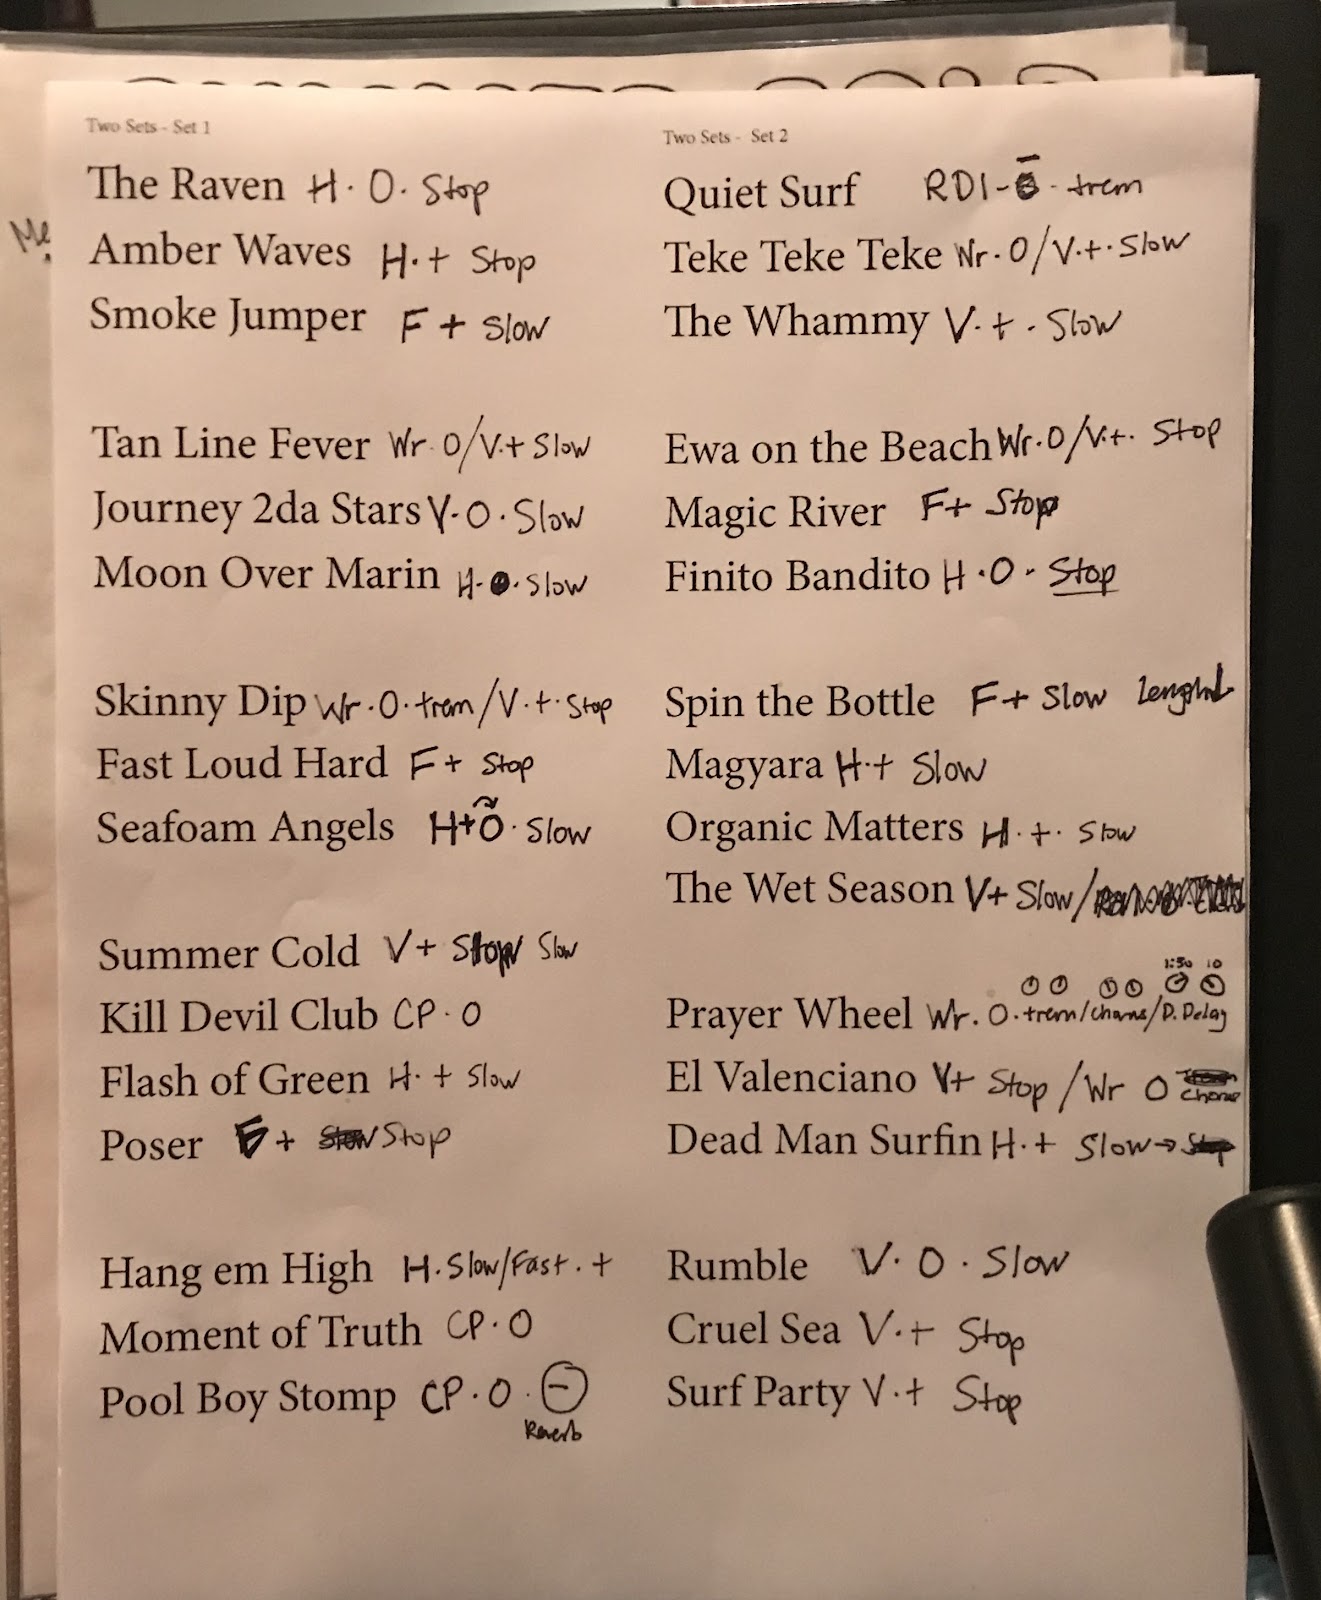 Me
Two Sets - Set 1
The Raven H · O · Stop
Amber Waves H · + Stop
Smoke Jumper F + Slow
Tan Line Fever Wr · O/V · + Slow
Journey 2da Stars V · O · Slow
Moon Over Marin H · O · Slow
Skinny Dip Wr · O · trem/V · + · Stop
Fast Loud Hard F + Stop
Seafoam Angels H + O · Slow
Summer Cold V + Stop Slow
Kill Devil Club CP · O
Flash of Green H · + Slow
Poser F + Slow Stop
Hang em High H · Slow/Fast · +
Moment of Truth CP · O
Pool Boy Stomp CP · O · -
Reverb
Two Sets - Set 2
Quiet Surf RDI - O · trem
Teke Teke Teke Wr · O/V · + · Slow
The Whammy V · + · Slow
Ewa on the Beach Wr · O/V · + · Stop
Magic River F + Stop
Finito Bandito H · O · Stop
Spin the Bottle F + Slow
Magyara H · + Slow
Organic Matters H · + · Slow
The Wet Season V + Slow/
1:30 10
Prayer Wheel Wr. O · trem/Chorus/D. Delay
El Valenciano V + Stop / Wr O Chorus
Dead Man Surfin H · + Slow → Stop
Rumble V · O · Slow
Cruel Sea V · + Stop
Surf Party V · + Stop